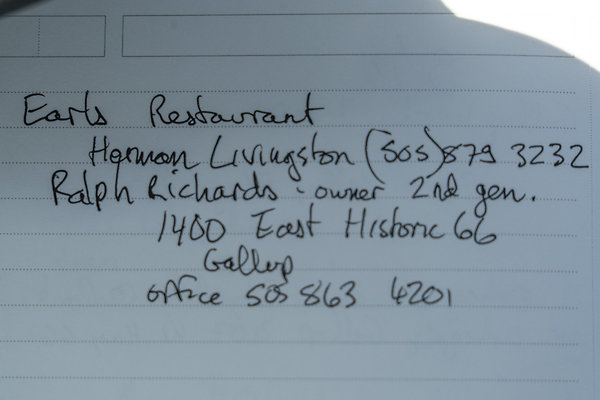 Earls Restaurant
Herman Livingston (505) 879 3232
Ralph Richards - owner 2nd gen.
1400 East Historic 66
Gallup
office 505 863 4201